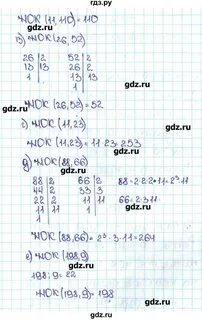 НОК(11,110)=110
в) НОК(26,52)
26 | 2   52 | 2
13 | 13   26 | 2
1 |   13 | 13
1 |
НОК(26,52)=52
с) НОК(11,23)
НОК(11,23)=11·23=253
д) НОК(88,66)
88 | 2   66 | 2   88=2·2·2·11=2³·11
44 | 2   33 | 3
22 | 2   11 | 11   66=2·3·11
11 | 11   1 |
1 |
НОК(88,66)=2³·3·11=264
е) НОК(198,9)
198:9=22
НОК(198,9)=198
gdz.ru
gdz.ru
gdz.ru
gdz.ru
gdz.ru
gdz.ru
gdz.ru
gdz.ru
gdz.ru
gdz.ru